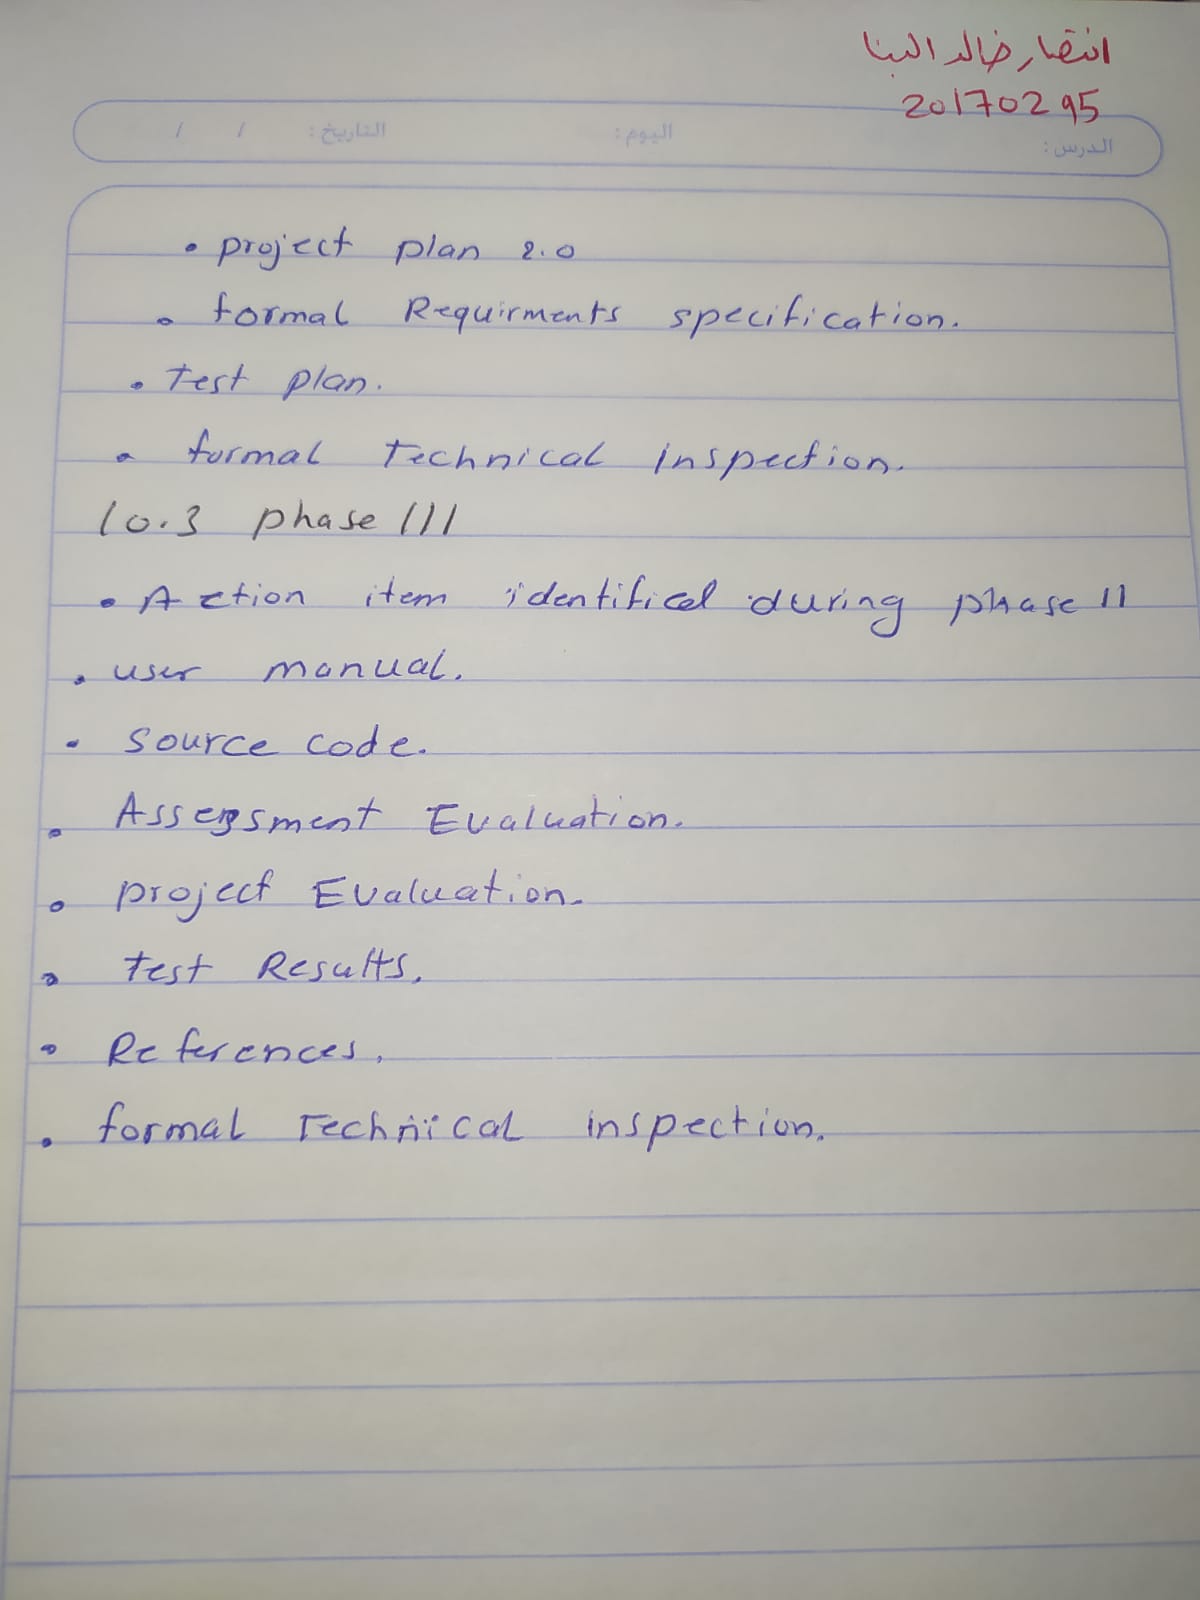 انتصار خالد البنا
20170295
الدرس: اليوم: التاريخ: / /
• project plan 2.0
• formal Requirments specification.
• Test plan.
• formal Technical inspection.
10.3 phase III
• Action item identified during phase II
• user manual.
• source code.
• Assessment Evaluation.
• project Evaluation.
• Test Results.
• References.
• formal Technical inspection.